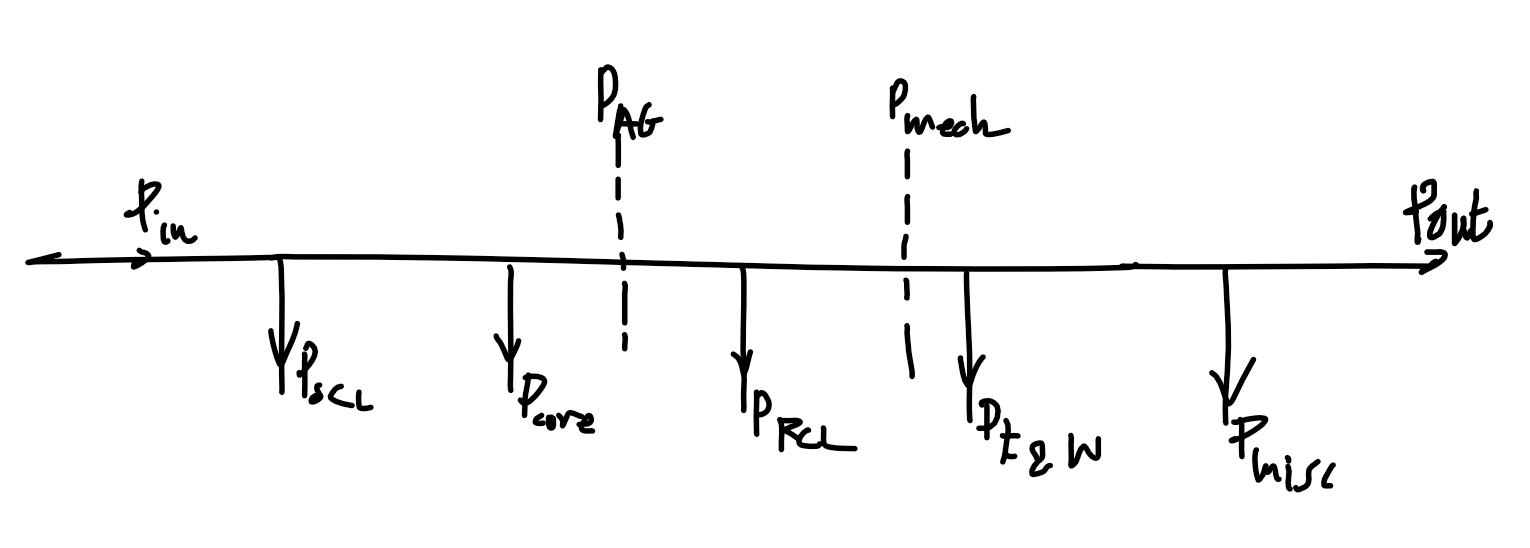 P_AG
P_mech
P_in
P_out
P_SCL
P_core
P_RCL
P_f&W
P_misc